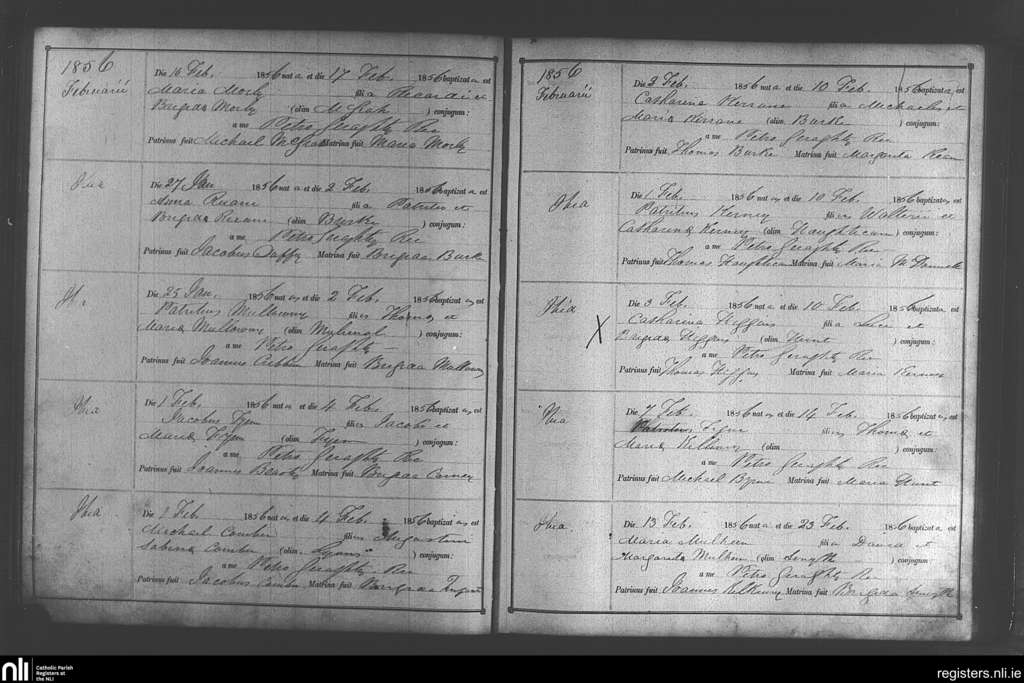 1856
Februarii
Die 16 Feb. 1856 nat a et die 17 Feb. 1856 baptizat a est
Maria Morly fili a Ricardi et
Brigida Morly (olim McGrah ) conjugum:
a me Petro Geraghty Rec
Patrinus fuit Michael McGrah Matrina fuit Maria Morly
Die 27 Jan 1856 nat a et die 2 Feb. 1856 baptizat a est
Anna Ruane fili a Patritii et
Brigida Ruane (olim Burke ) conjugum:
a me Petro Geraghty Rec
Patrinus fuit Jacobus Matrina fuit Brigida Burke
Die 25 Jan. 1856 nat us et die 2 Feb. 1856 baptizat us est
Patritius Mullowny fili us Thoma et
Maria Mullowny (olim ) conjugum:
a me Petro Geraghty
Patrinus fuit Joannes Matrina fuit Brigida Mullowny
Die 1 Feb. 1856 nat us et die 4 Feb. 1856 baptizat us est
Jacobus Flynn fili us Jacobi et
Maria Flynn (olim Flynn ) conjugum:
a me Petro Geraghty Rec
Patrinus fuit Joannes Matrina fuit Brigida
Ibid
Die 1 Feb 1856 nat us et die 4 Feb. 1856 baptizat us est
Michael Comber fili us Augustini
Sabina Comber (olim Lyons ) conjugum:
a me Petro Geraghty Rec
Patrinus fuit Jacobus Matrina fuit Brigida
1856
Februarii
Die 2 Feb. 1856 nat a et die 10 Feb. 1856 baptizat a est
Catharina Kerrane fili a Michaelis et
Maria Kerrane (olim Burke ) conjugum:
a me Petro Geraghty Rec
Patrinus fuit Thomas Burke Matrina fuit Margarita
Ibid
Die 1 Feb. 1856 nat us et die 10 Feb. 1856 baptizat us est
Patritius Kerney fili us Walteri et
Catharina Kerney (olim ) conjugum:
a me Petro Geraghty Rec
Patrinus fuit Thomas Matrina fuit Maria
Ibid
X
Die 3 Feb. 1856 nat a et die 10 Feb. 1856 baptizat a est
Catharina Higgins fili a Luce et
Brigida Higgins (olim Hunt ) conjugum:
a me Petro Geraghty Rec
Patrinus fuit Thomas Higgins Matrina fuit Maria Kerney
Ibid
Die 7 Feb. 1856 nat us et die 14 Feb. 1856 baptizat us est
Patritius fili us Thoma et
Maria (olim ) conjugum:
a me Petro Geraghty Rec
Patrinus fuit Michael Byrne Matrina fuit Maria Hunt
Ibid
Die 13 Feb. 1856 nat a et die 23 Feb. 1856 baptizat a est
Maria Mulkeen fili a David et
Margarida Mulkeen (olim Smyth ) conjugum:
a me Petro Geraghty Rec
Patrinus fuit Joannes Kilkenny Matrina fuit Brigida Smyth
nli
Catholic Parish
Registers at
the NLI
registers.nli.ie